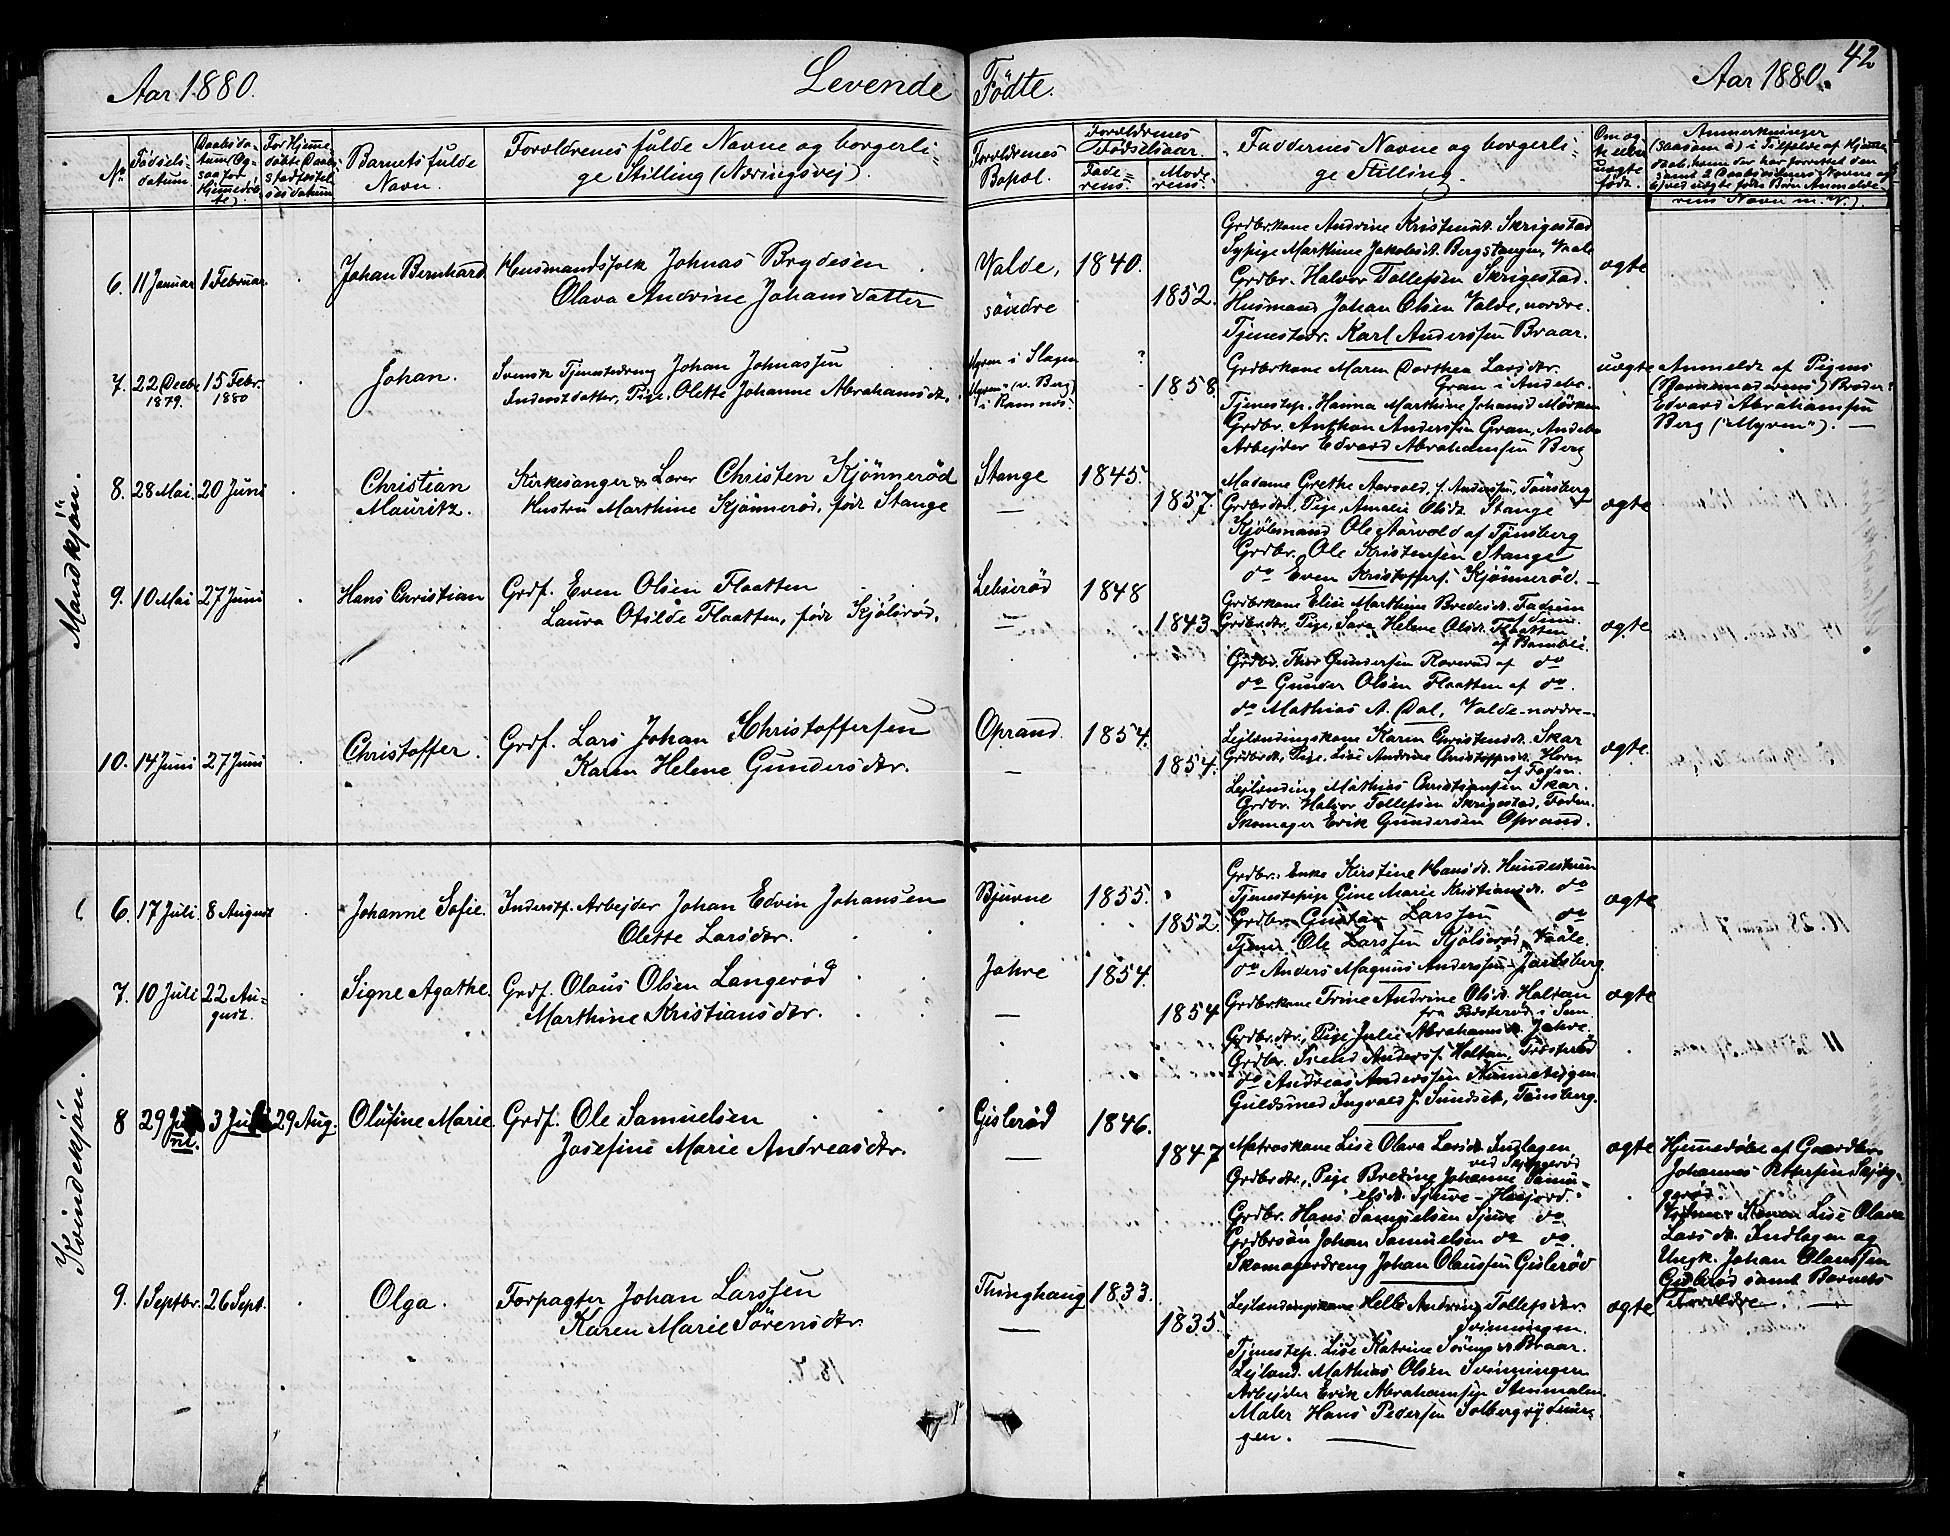 42
Aar 1880. Levende Fødte. Aar 1880.
No Fødselsdatum Daabsdatum (Ogsaa for Hjemmedøbte). For Hjemmedøbte Daabs Stadfæstelsesdatum Barnets fulde Navn. Forældrenes fulde Navne og borgerlige Stilling (Næringsvej). Forældrenes Bopæl. Forældrenes Fødselsaar. Faderens. Moderens. Faddernes Navne og borgerlige Stilling. Om ægte eller uægte født. Anmærkninger
Mandkjön.
6. 11 Januar 1 Februar Johan Bernhard Husmandsfolk Johnas Brydesen
Olava Andrine Johansdatter
Valde, søndre 1840. 1852.
Grdbr.kone Andrine Kristensdt. Skrigestad
Sypige Marthine Jakobsdt. Bergstangen, Vaale
Grdbr. Halvor Tollefsen Skrigestad.
Husmand Johan Olsen Valde, nordre.
Tjenestedr. Karl Anderssen Braar.
ægte
7. 22 Decbr 1879. 15 Febr. 1880 Johan. Svensk Tjenestedreng Johan Johnassen
Inderstdatter, Pige, Olette Johanne Abrahamsdtr.
Myren i Slagen
"Myren" (v. Berg) i Ramnæs.
? 1858
Grdbr.kone Maren Dorthea Larsdtr.
Gran i Andebo.
Tjenestep. Hanna Marthine Johansd Mørken
Grdbr. Anthon Anderssen Gran, Andebo
Arbejder Edvard Abrahamsen Berg
uægte
Anmeldt af Pigens
(Barnemoderens) Broder:
Edvard Abrahamsen
Berg ("Myren"). —
8. 28 Mai. 20 Juni Christian Mauritz. Kirkesanger & Lærer Christen Kjønnerød
Hustru Marthine Kjønnerød, født Stange
Stange 1845. 1857.
Madame Grethe Aarvold, f. Anderssen, Tønsberg
Grdbr.dtr. Pige, Amalie Olsdt. Stange
Kjøbmand Ole Aarvold af Tønsberg
Grdbr. Ole Kristensen Stange
do Even Kristoffers. Kjønnerød. —
ægte
9. 10 Mai 27 Juni Hans Christian Grdf. Even Olsen Flaatten
Laura Otilde Flaatten, født Kjølsrød.
Lekserød 1848 1843.
Grdbr.kone Elise Marthine Bredesdt. Fadum
i Sem.
Grdbr.dtr. Pige, Sara Helene Olsdt. Flaatten
af Bamble.
Grdbr. Thor Gundersen Roverud af do
do Gunder Olsen Flaatten af do.
do Mathias A. Dal, Valde-nordre.
ægte
10. 14 Juni 27 Juni Christoffer. Grdf. Lars Johan Christoffersen
Karen Helene Gundersdtr.
Oprand 1854. 1854.
Lejlændingskone Karen Christensdt. Skar
Grdbr.dt. Pige, Lise Andrine Christoffersdt. Horn
af Foden.
Lejlænding Mathias Christiansen Skar.
Grdbr. Halvor Tollefsen Skrigestad, Foden.
Skomager Erik Gundersen Oprand.
ægte.
Kvindekjön.
6. 17 Juli. 8 August Johanne Sofie. Inderstf. Arbejder Johan Edvin Johansen
Olette Larsdtr.
Bjuvne 1855. 1852
Grdbr. Enke Kirstine Hansdt. Hundestuen
Tjenestepige Gine Marie Kristiansdt. do
Grdbr. Gustav Larssen do
Tjener Ole Larssen Kjølsrød, Vaale.
do Anders Magnus Anderssen Jarlsberg.
ægte
7. 10 Juli 22 August. Signe Agathe. Grdf. Olaus Olsen Langerød
Marthine Kristiansdtr.
Jahre 1854. 1854
Grdbr.kone Trine Andrine Olsdt. Haltan
fra Basterød i Sem
Grdbr.dtr., Pige Julie Abrahamsdt. Jahre.
Grdbr. Svend Anders. Haltan,
do Andreas Anderssen
Guldsmed Ingvald J. Sundset, Tønsberg.
ægte
8 29 3 29 Aug. Olufine Marie Grdf. Ole Samuelsen
Josefine Marie Andreasdtr.
Gislerød 1846. 1847
Matroskone Lise Olava Larsdt. Indlagen
ved
Grdbr.dtr., Pige Bredine Johanne Samuelsdt. Sjuve - Hasjord.
Grdbr. Hans Samuelsen Sjuve do.
Grdbrsøn Johan Samuelsen do do.
Skomagerdreng Johan Olaussen Gislerød
ægte
Hjemmedøbt af Gaardbr.
Johannes Pettersen
Kone Lise Olava
Larsdt. Indlagen og
Ungk. Johan Olaussen
Gislerød samt Barnets
Forældre. —
9. 1 Septbr. 26 Sept. Olga. Forpagter Johan Larssen
Karen Marie Sørensdtr.
Thinghaug 1833. 1835.
Lejlændingskone Helle Andrine Tollefsdtr.
Svinningen.
Tjenestep. Lise Katrine Sørensdt Braar.
Lejlænd. Mathias Olsen Svinningen
Arbejder Erik Abrahamsen
Maler Hans Pedersen
gen. —
ægte